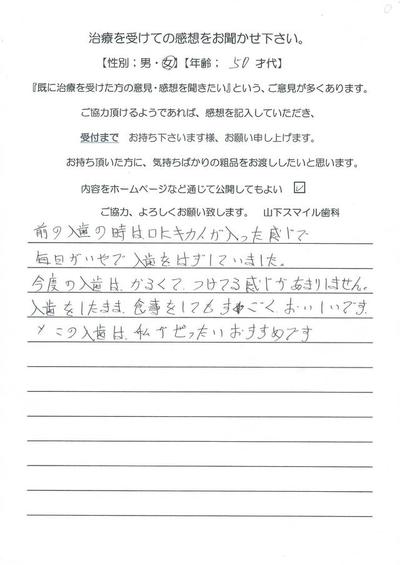 治療を受けての感想をお聞かせ下さい。
【性別；男・女】【年齢； 50 才代】
『既に治療を受けた方の意見・感想を聞きたい』という、ご意見が多くあります。
ご協力頂けるようであれば、感想を記入していただき、
受付まで お持ち下さいます様、お願い申し上げます。
お持ち頂いた方に、気持ちばかりの粗品をお渡ししたいと思います。
内容をホームページなど通じて公開してもよい ☑
ご協力、よろしくお願い致します。 山下スマイル歯科
前の入歯の時は口にキカイが入った感じで
毎日がいやで入歯をはずしていました。
今度の入歯は、かるくて、つけてる感じがあまりしません。
入歯をしたまま、食事をしてもすごく、おいしいです。
この入歯は、私がぜったいおすすめです